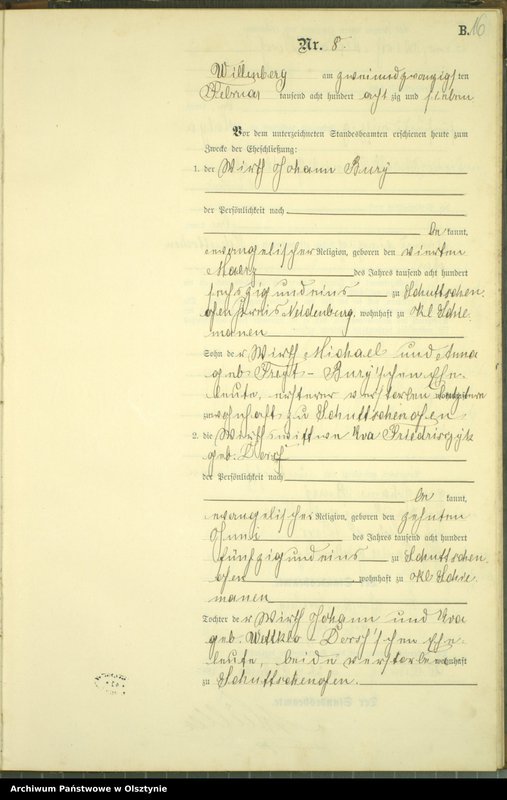 B. 16
Nr. 8.
Willenberg am zweiundzwanzigsten
Februar tausend acht hundert achtzig und sieben
Vor dem unterzeichneten Standesbeamten erschienen heute zum
Zwecke der Eheschließung:
1. der Wirth Johann Bury
der Persönlichkeit nach
bekannt,
evangelischer Religion, geboren den vierten
Maerz des Jahres tausend acht hundert
sechszig und eins zu Schuttschen-
ofen Kreis Neidenburg, wohnhaft zu Kl Schie-
manen
Sohn der Wirth Michael und Anna
geb. - Bury'schen Ehe-
leute, ersterer verstorben letztere
wohnhaft zu Schuttschenofen
2. die Wirthswittwe Eva
geb. Dorsch
der Persönlichkeit nach
bekannt,
evangelischer Religion, geboren den zehnten
Juni des Jahres tausend acht hundert
fünfzig und eins zu Schuttschen-
ofen, wohnhaft zu Kl Schie-
manen
Tochter der Wirth Johann und Eva
geb. - Dorsch'schen Ehe-
leute, beide verstorben wohnhaft
zu Schuttschenofen.
Archiwum Państwowe w Olsztynie